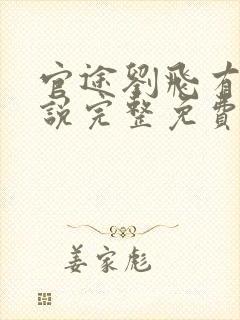 官途劉飛有
說完整免費
姜家彪